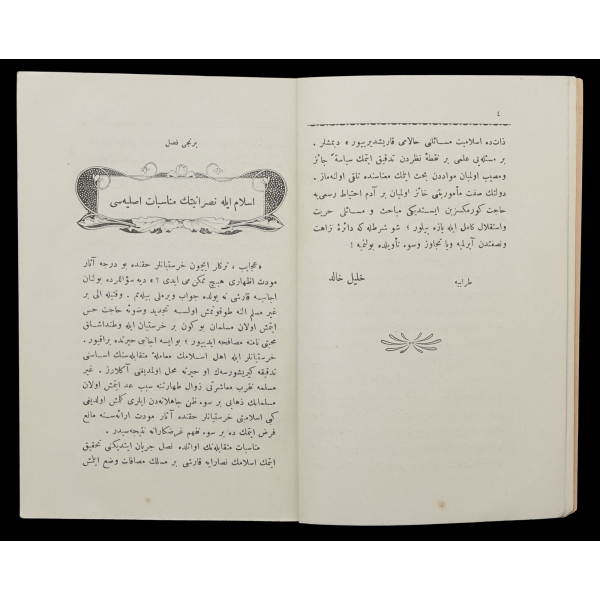 ٤
ذاتده اسلامیت مسائلنی حالامی قاریشدیریبیور » دیمشلر .
بر مسئله‌یی علمی بر نقطهٔ نظردن تدقیق ایتمك سیاسةً جائز
ومصیب اولمیان موادّدن بحث ایتمك معناسنده تلقی اولنه‌ماز .
دولتك صفت مأموریتنی حائز اولمیان بر آدم احتیاط رسمی‌یه
حاجت كورمكسزین ایستدیكی مباحث و مسائلی حریت
واستقلال كامل ایله یازه بیلور ؛ شو شرطله كه دائرهٔ نزاهت
ونصفتدن آیرلمیه ویا تجاوز وسوء تأویلده بولنمیه !
طرابیه
خلیل خالد
برنجی فصل
اسلام ایله نصرانیتك مناسبات اصلیه‌سی
« عجایب ، تركلر ایچون خرستیانلر حقنده بو درجه آثار
مودت اظهاری هیچ ممكن‌می ایدی ؟ » دیه سؤالرده بولنان
اجانبه قارشی نه یولده جواب ویرملی بیله‌م . وقتیله الی بر
غیر مسلم النه طوقونمش اولسه تجدید وضوئه حاجت حس
ایتمش اولان مسلمان بو كون بر خرستیان ایله وطنداشلق
محبتی نامنه مصافحه ایدیبور ؛ بو ایسه اجانبی حیرتده براقیور .
خرستیانلر ایله اهل اسلامك معاملهٔ متقابله‌سنك اساسنی
تدقیقه كیریشورسه‌ك او حیرته محل اولمدیغنی آكلارز . غیر
مسلمه تقرب معاشرتی زوال طهارتنه سبب عد ایتمش اولان
مسلمانك ذهابی بر سوء ظن جاهلانه‌دن ایلری كلمش اولدیغی
كبی اسلامیتی خرستیانلر حقنده آثار مودت ارائه‌سنه مانع
فرض ایتمك ده بر سوء تفهم غرضكارانه نتیجه‌سیدر .
مناسبات متقابله‌نك اوائلده نصل جریان ایتدیكنی تحقیق
ایتمك اسلامك نصارایه قارشی بر مسلك مصافات وضع ایتمش